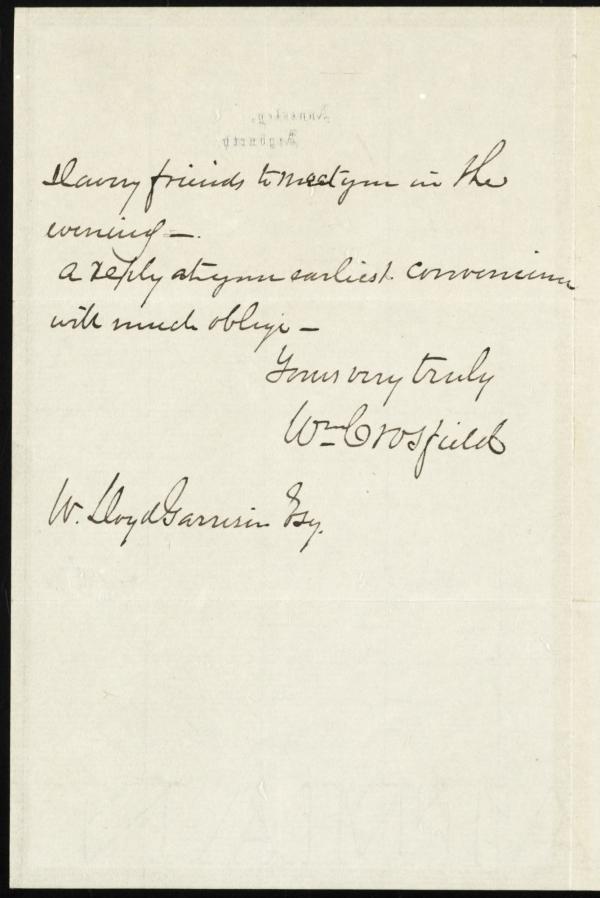 Annesley,
Aigburth
Slavery friends to meet you in the
evening —.
a reply at your earliest convenience
will much oblige —
Yours very truly
Wm Crosfield
W. Lloyd Garrison Esq.